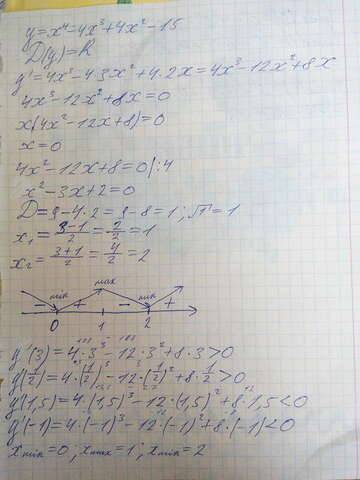 y=x⁴-4x³+4x²-15
D(y)=R
y'=4x³-4·3x²+4·2x=4x³-12x²+8x
4x³-12x²+8x=0
x(4x²-12x+8)=0
x=0
4x²-12x+8=0|:4
x²-3x+2=0
D=9-4·2=9-8=1; √1=1
x₁=(3-1)/2=2/2=1
x₂=(3+1)/2=4/2=2
min max min
- + - +
0 1 2
y'(3)=4·3³-12·3²+8·3>0
y'(1/2)=4·(1/2)³-12·(1/2)²+8·1/2>0
y'(1,5)=4·(1,5)³-12·(1,5)²+8·1,5<0
y'(-1)=4·(-1)³-12·(-1)²+8·(-1)<0
xmin=0; xmax=1; xmin=2